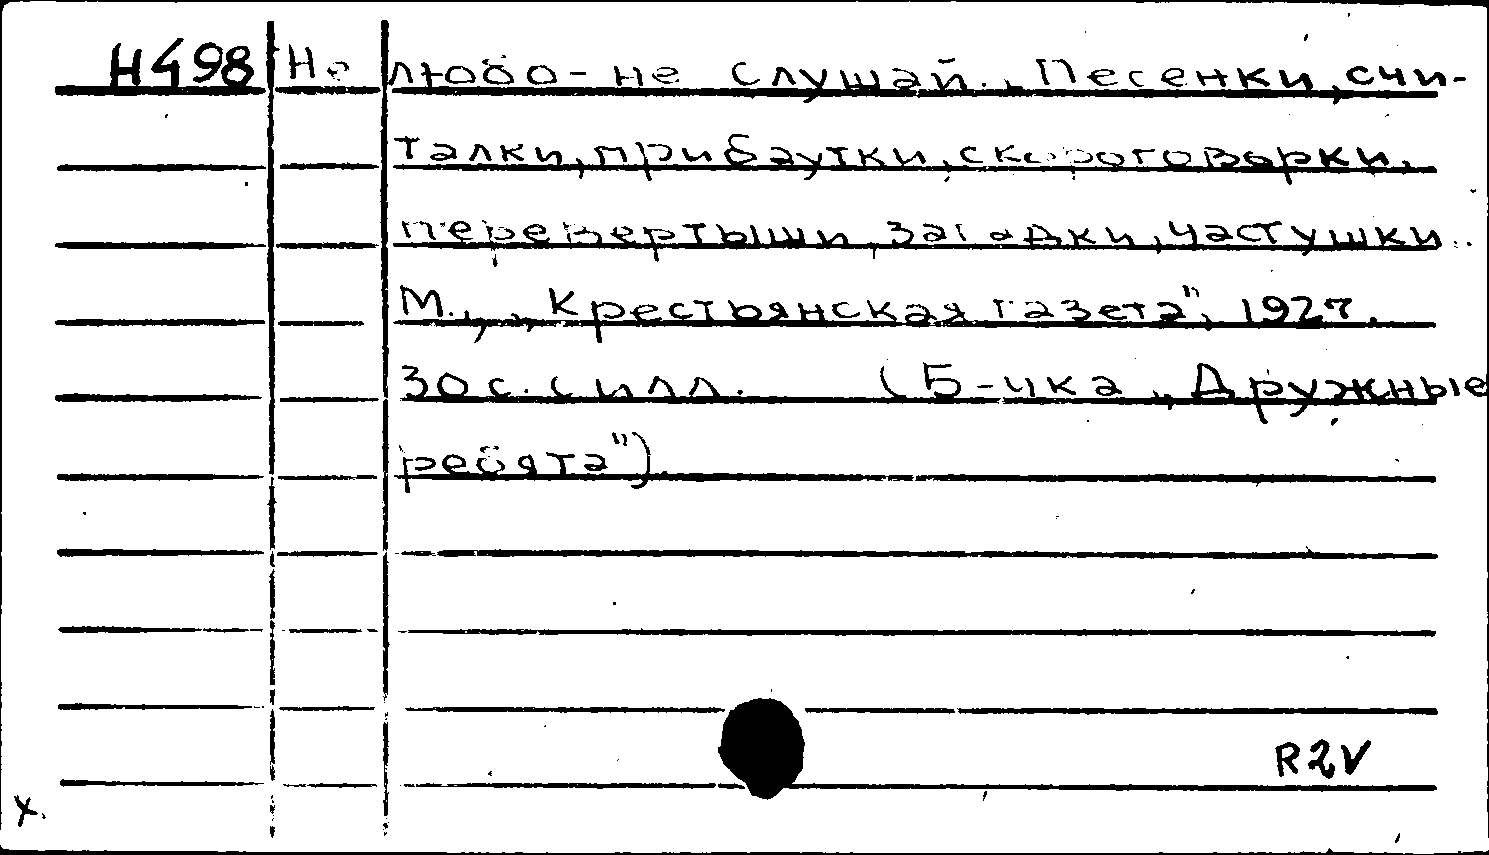 Н498 Не любо - не слушай.. Песенки, счи-
талки, прибаутки, скороговорки,
перевертыши, загадки, частушки..
М., „Крестьянская газета", 1927.
30 с. с илл. (Б-чка „Дружные
ребята").
R2V
х.